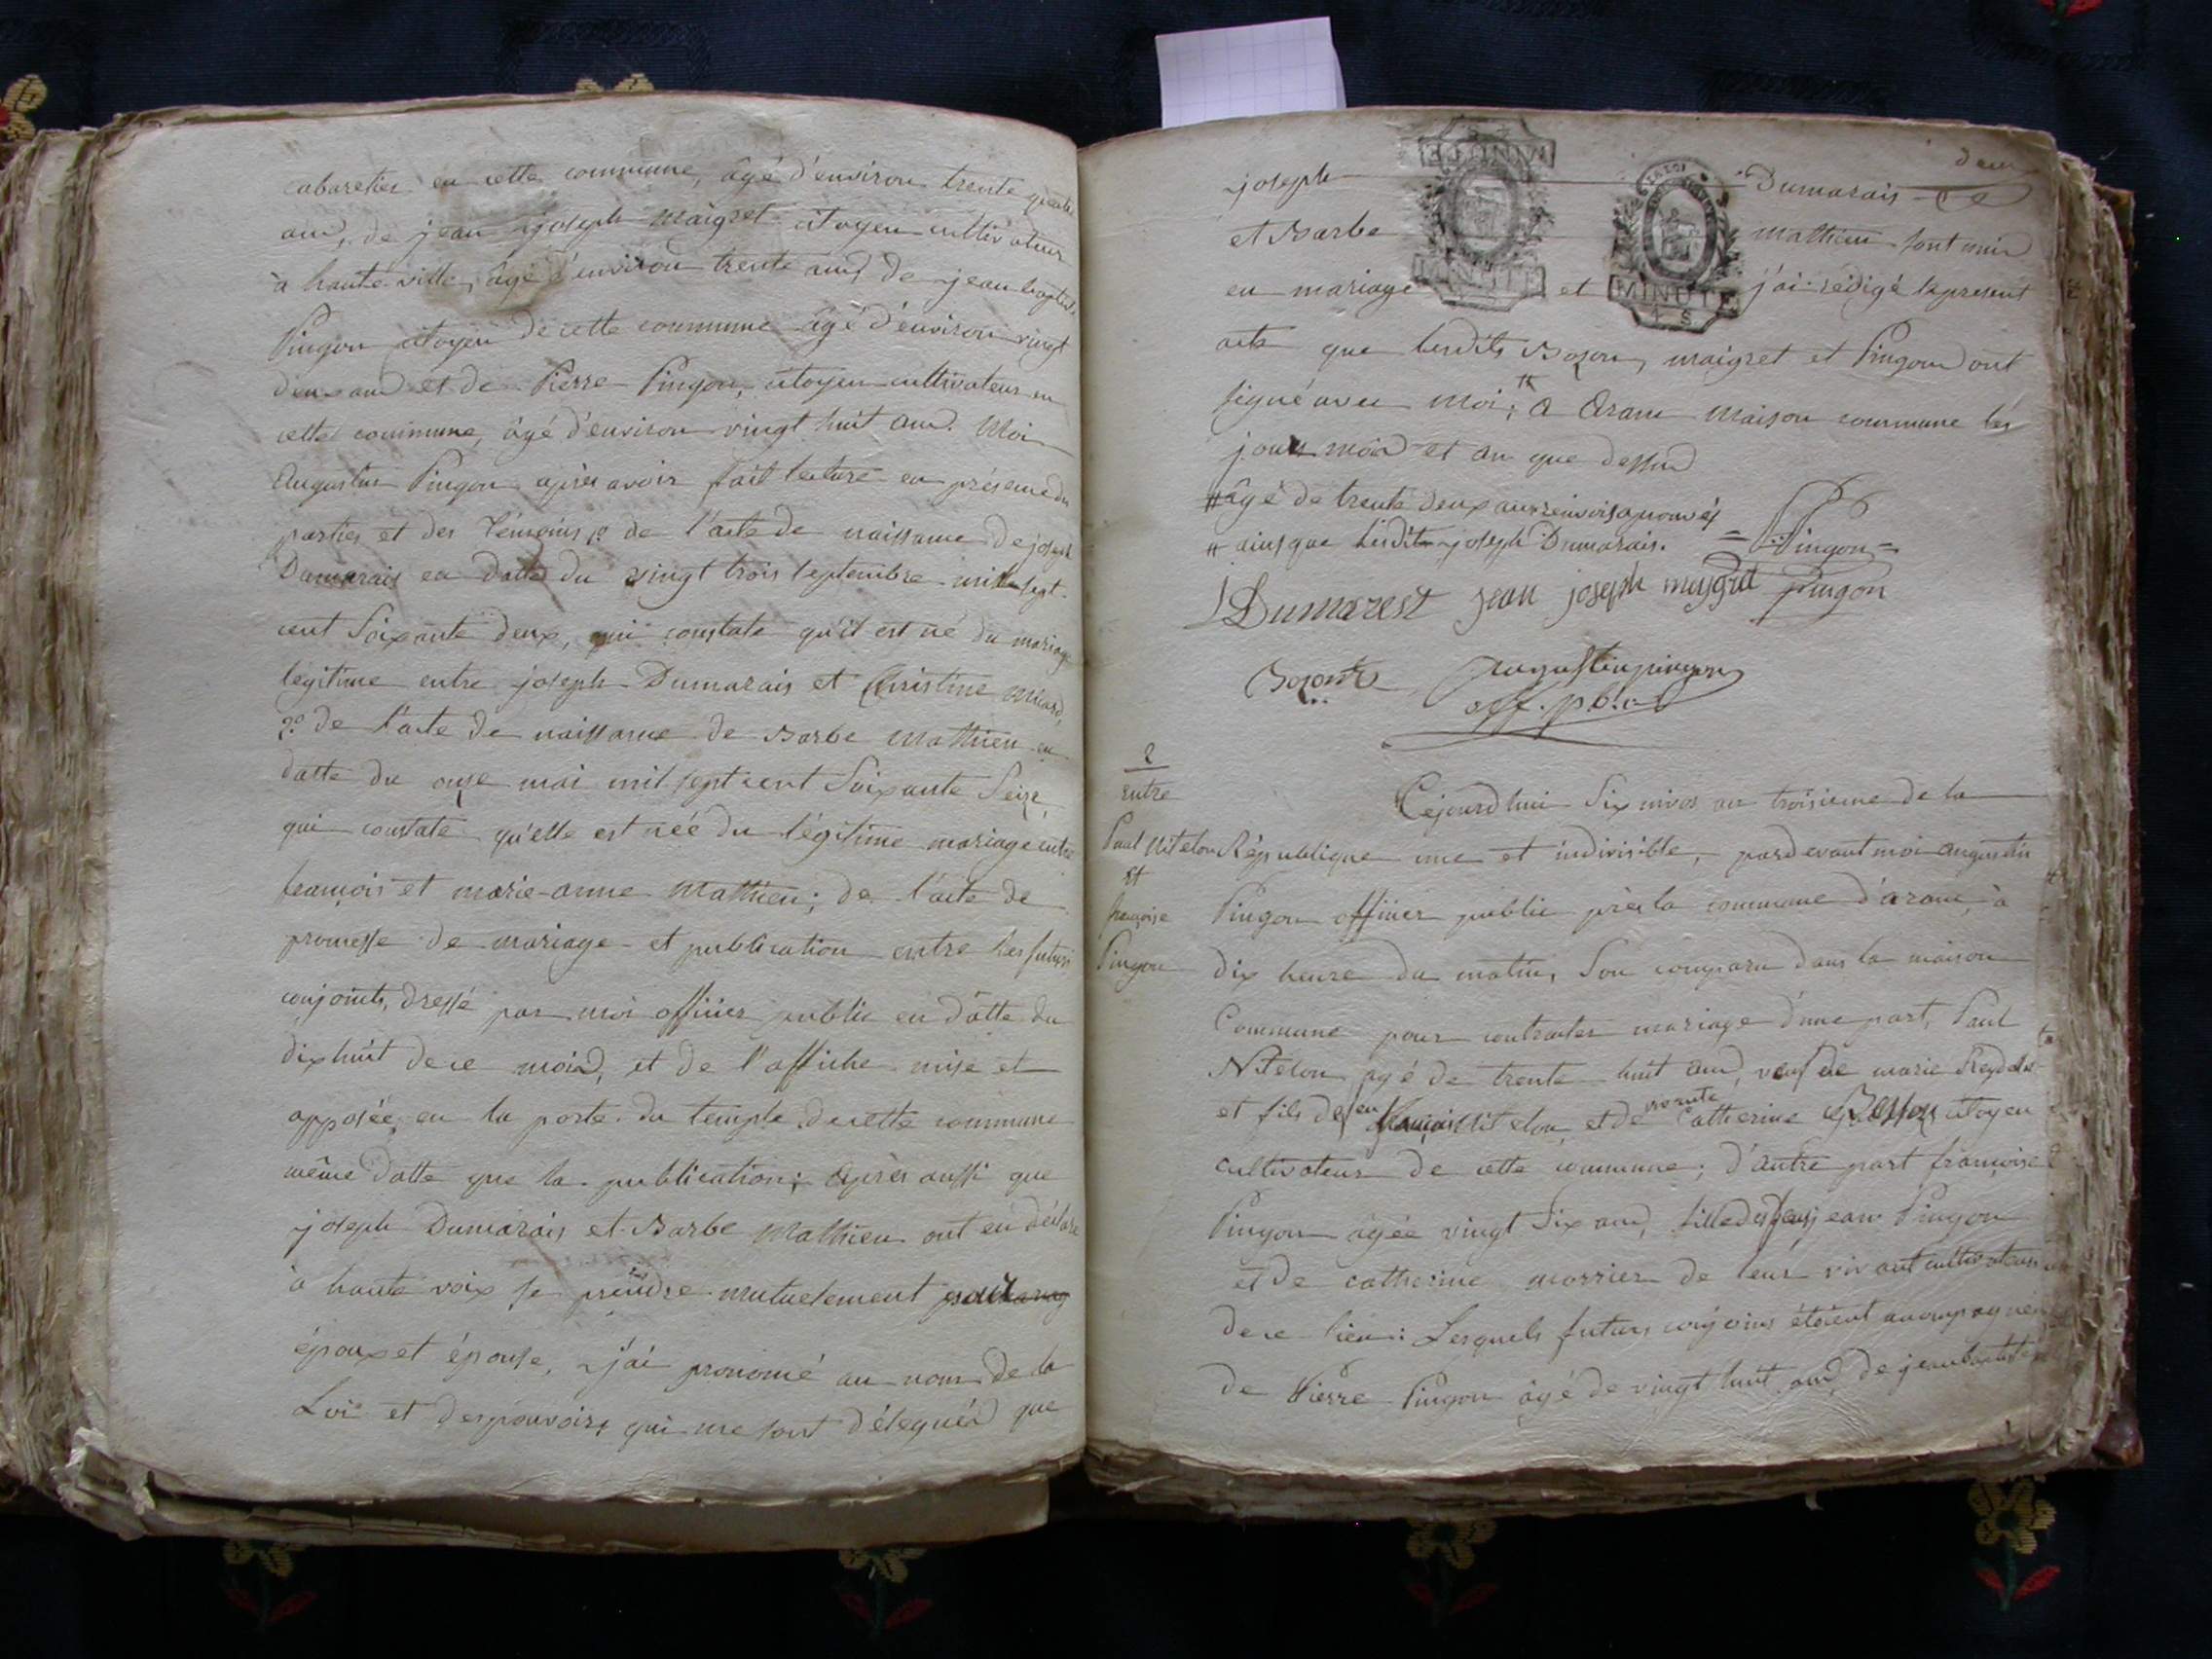 cabaretier en cette commune, âgé d'environ trente quatre
ans, de jean joseph maigret citoyen cultivateur
à hauteville, âgé d'environ trente ans, de jean baptiste
Pingon citoyen de cette commune âgé d'environ vingt
deux ans et de Pierre Pingon, citoyen cultivateur en
cette commune, âgé d'environ vingt huit ans. Moi
Augustin Pingon après avoir fait lecture en présence des
parties et des témoins 1º de l'acte de naissance de joseph
Dumarais en datte du vingt trois septembre mil sept
cent soixante deux, qui constate qu'il est né du mariage
légitime entre joseph Dumarais et Christine
2º de l'acte de naissance de Barbe Mathieu en
datte du onze mai mil sept cent soixante seize,
qui constate qu'elle est née du légitime mariage entre
françois et marie-anne Mathieu; de l'acte de
promesse de mariage et publication entre les futurs
conjoints, dressé par moi officier public en datte du
dix huit de ce mois, et de l'affiche mise et
apposée en la porte du temple de cette commune
même datte que la publication; Après aussi que
joseph Dumarais et Barbe Mathieu ont eu déclaré
à haute voix se prendre mutuelement pour
époux et épouse, j'ai prononcé au nom de la
Loi et des pouvoirs qui me sont délégués que
deux
joseph Dumarais
et Barbe mathieu sont unis
en mariage et j'ai rédigé le present
MINUTE
acte que lesdits Bozon, maigret et Pingon ont
signé avec moi; # A Aranc maison commune les
jour, mois et an que dessus
# âgé de trente deux ans renvois aprouvés
# ainsi que ledit joseph Dumarais. = Pingon =
J Dumarest jean joseph meygret pingon
Bozon augustin pingon
off. pblc
2
entre
Paul Nitelon
et
françoise
Pingon
Cejourd'hui six nivos an troisieme de la
République une et indivisible, pardevant moi augustin
Pingon officier public près la commune d'aranc, à
dix heure du matin, son comparu dans la maison
Commune pour contracter mariage d'une part, Paul
Nitelon agé de trente huit ans, veuf de marie Reydelet
et fils de feu françois Nitelon, et de vivante Catherine Besson citoyen
cultivateur de cette commune; d'autre part françoise
Pingon agée vingt six ans, fille des feus jean Pingon
et de catherine morrier de leur vivant cultivateurs
de ce lieu: Lesquels futurs conjoins étoient accompagnés
de Pierre Pingon âgé de vingt huit ans, de jean baptiste